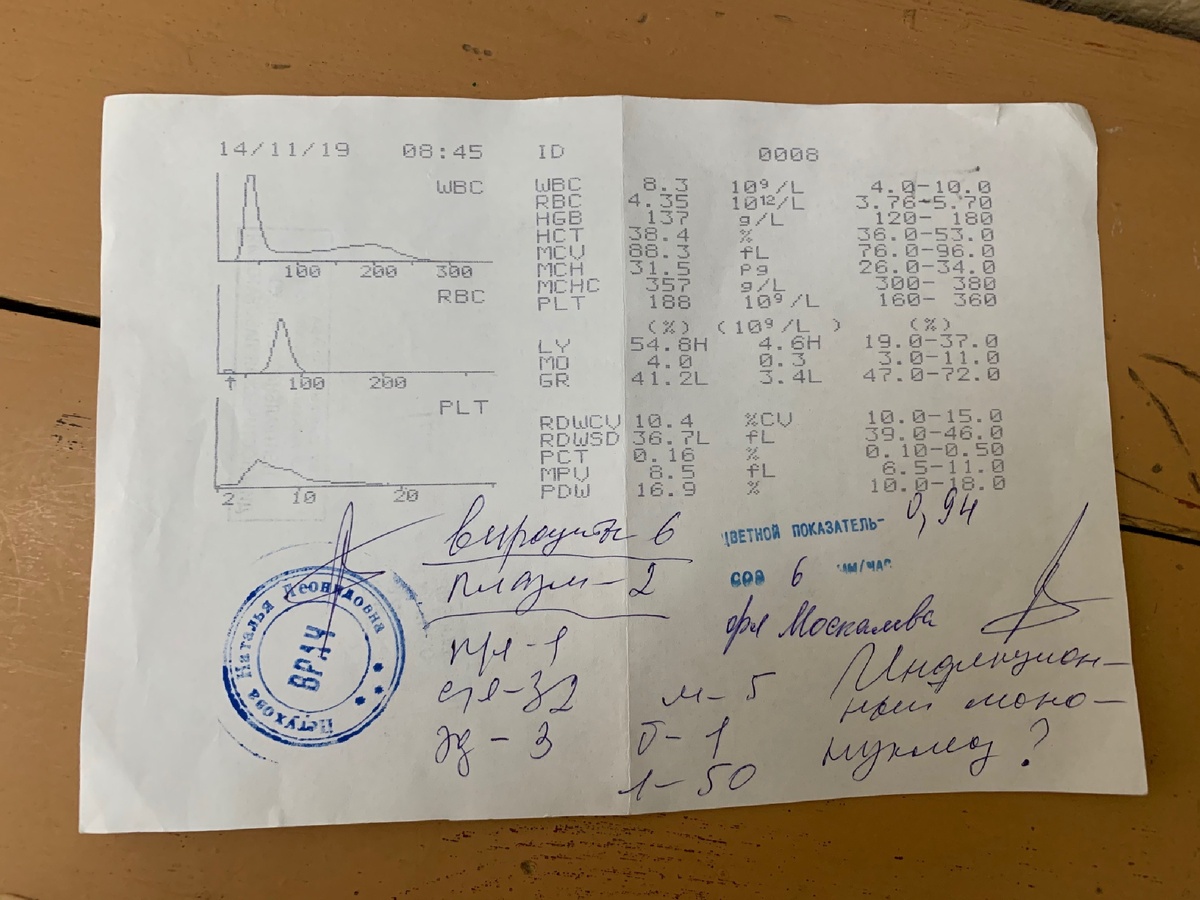 14/11/19 08:45 ID 0008
WBC
100 200 300
RBC
100 200
PLT
2 10 20
WBC 8.3 10⁹/L 4.0-10.0
RBC 4.35 10¹²/L 3.76-5.70
HGB 137 g/L 120- 180
HCT 38.4 % 36.0-53.0
MCV 88.3 fL 76.0-96.0
MCH 31.5 pg 26.0-34.0
MCHC 357 g/L 300- 380
PLT 188 10⁹/L 160- 360
(%) (10⁹/L ) (%)
LY 54.8H 4.6H 19.0-37.0
MO 4.0 0.3 3.0-11.0
GR 41.2L 3.4L 47.0-72.0
RDWCV 10.4 %CV 10.0-15.0
RDWSD 36.7L fL 39.0-46.0
PCT 0.16 % 0.10-0.50
MPV 8.5 fL 6.5-11.0
PDW 16.9 % 10.0-18.0
вироциты 6
плазм-2
п/я-1
с/я-32
э-3
м-5
б-1
л-50
ЦВЕТНОЙ ПОКАЗАТЕЛЬ- 0,94
СОЭ 6 ММ/ЧАС
Инфекцион-
ный моно-
нуклеоз?
Петухова Наталья Леонидовна
ВРАЧ